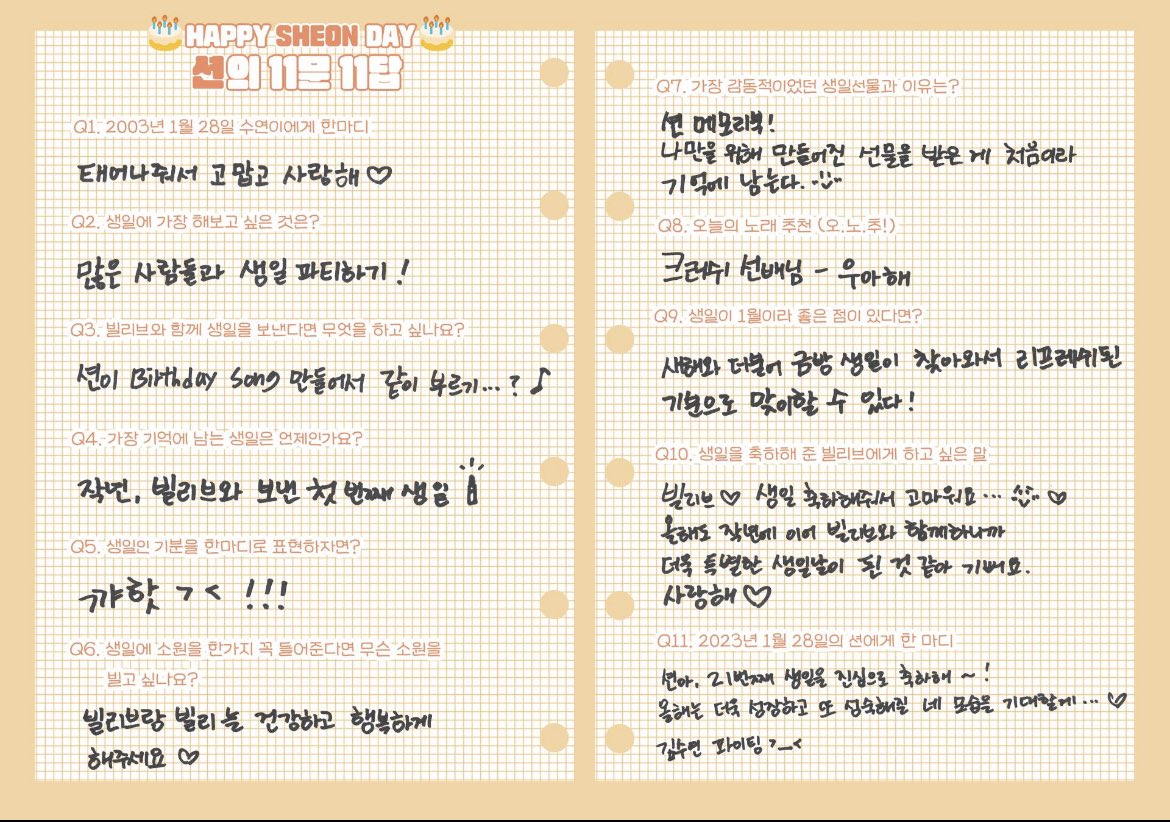 HAPPY SHEON DAY
션의 11문 11답
Q1. 2003년 1월 28일 수연이에게 한마디
태어나줘서 고맙고 사랑해♡
Q2. 생일에 가장 해보고 싶은 것은?
많은 사람들과 생일 파티하기!
Q3. 빌리브와 함께 생일을 보낸다면 무엇을 하고 싶나요?
션이 Birthday Song 만들어서 같이 부르기...? ♪
Q4. 가장 기억에 남는 생일은 언제인가요?
작년, 빌리브와 보낸 첫 번째 생일
Q5. 생일인 기분을 한마디로 표현하자면?
꺄핫 ㄱ < !!!
Q6. 생일에 소원을 한가지 꼭 들어준다면 무슨 소원을
빌고 싶나요?
빌리브랑 빌리 늘 건강하고 행복하게
해주세요 ♡
Q7. 가장 감동적이었던 생일선물과 이유는?
션 메모리북!
나만을 위해 만들어진 선물을 받은 게 처음이라
기억에 남는다.
Q8. 오늘의 노래 추천 (오.노.추!)
크러쉬 선배님 - 우아해
Q9. 생일이 1월이라 좋은 점이 있다면?
새해와 더불어 금방 생일이 찾아와서 리프레쉬된
기분으로 맞이할 수 있다!
Q10. 생일을 축하해 준 빌리브에게 하고 싶은 말
빌리브♡ 생일 축하해줘서 고마워요... ♡
올해도 작년에 이어 빌리브와 함께하니까
더욱 특별한 생일날이 된 것 같아 기뻐요.
사랑해♡
Q11. 2023년 1월 28일의 션에게 한 마디
션아, 21번째 생일을 진심으로 축하해 ~!
올해는 더욱 성장하고 또 성숙해질 네 모습을 기대할게... ♡
김수연 화이팅 ㄱ_<